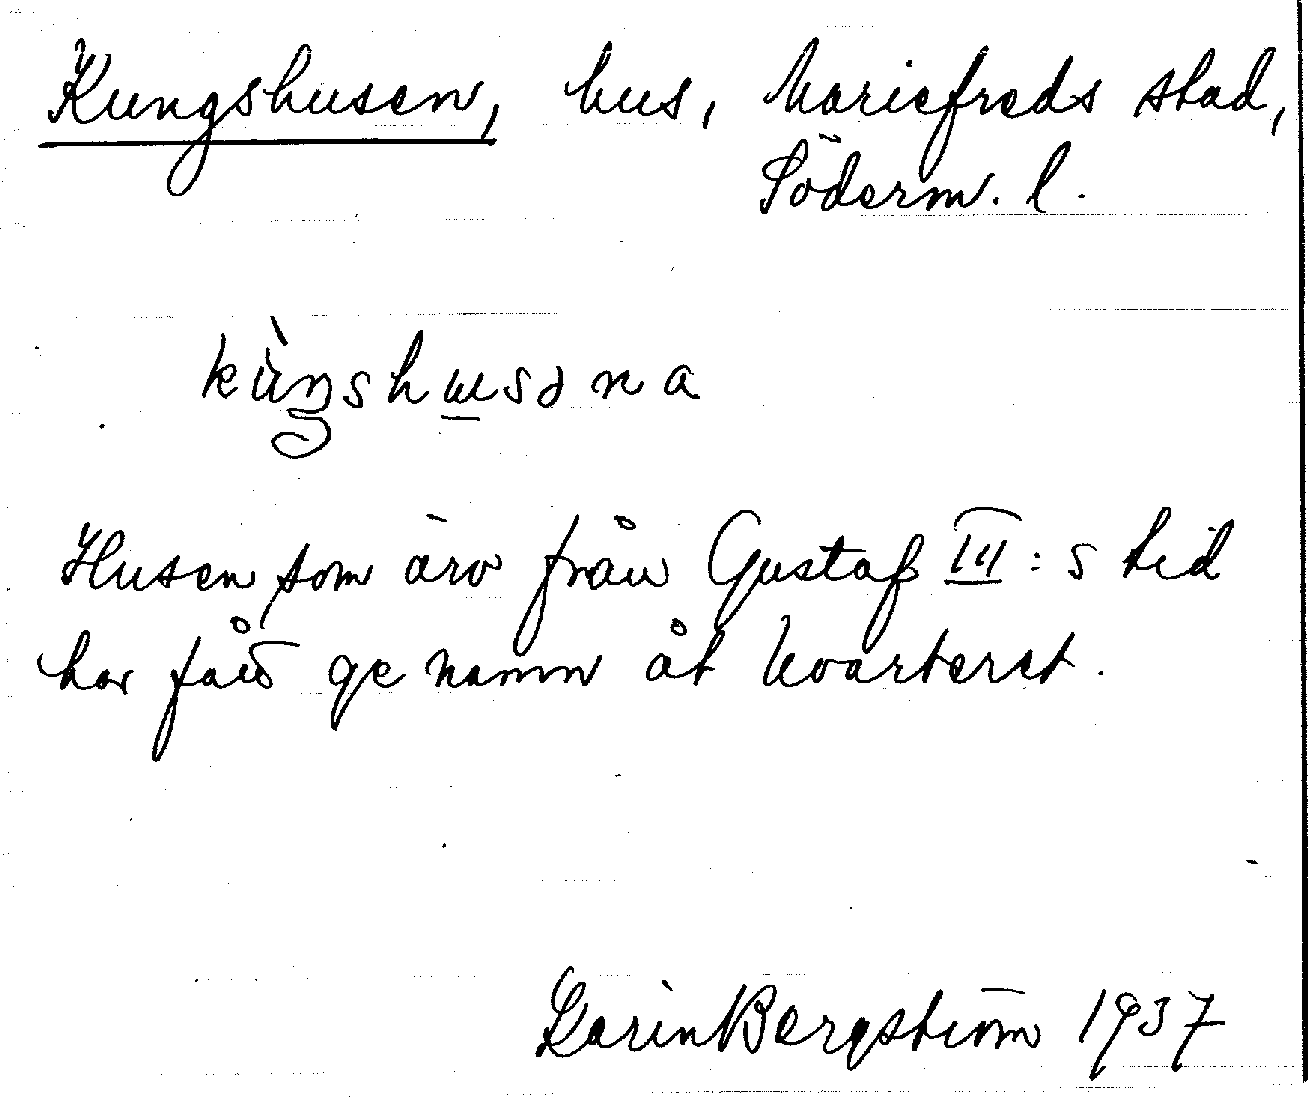 Kungshusen, hus, Mariefreds stad,
Söderm. l.
kùŋshusəna
Husen som äro från Gustaf III:s tid
har fått ge namn åt kvarteret.
Karin Bergström 1937